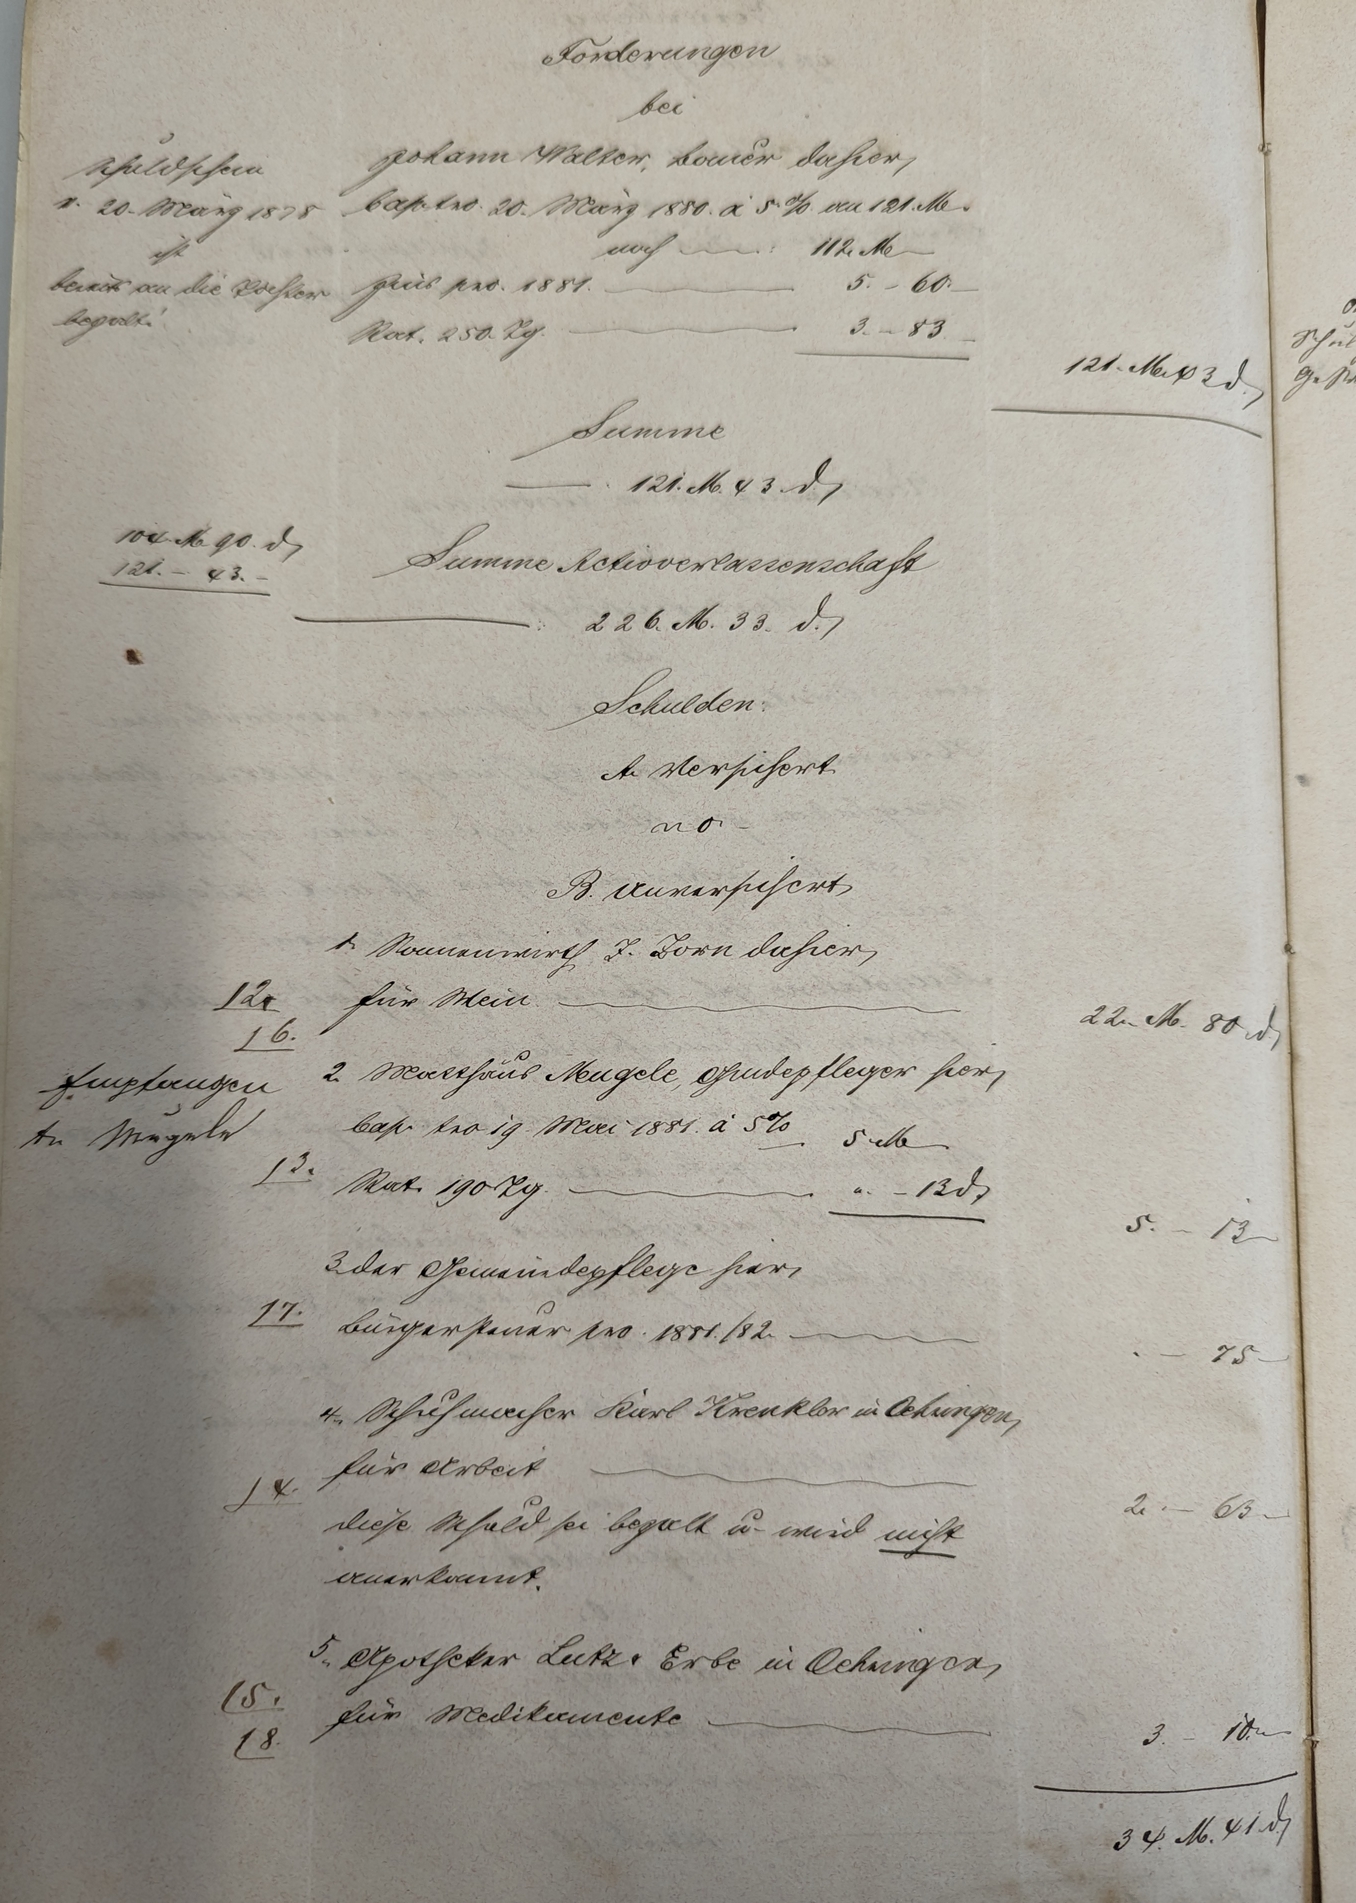 Forderungen
bei
Schuldschein
v. 20. März 1878
ist
bereits an die Tochter
bezalt!
Johann Walter, Bauer dahier,
Cap. tvo. 20. März 1880. à 5.% an 121. M.
noch — : 112. M —
Zins pro. 1881. — 5. - 60. —
Rat. 250. Tg. — 3. - 83. —
121. M. 43 d.
Summe
— . 121. M. 43. d.
104. M. 90. d.
121. — 43. —
Summe Activverlassenschaft
— : 226. M. 33. d.
Schulden:
A. Versichert
no -
B. Unversichert
1. Sonnenwirth J. Zorn dahier,
12.
für Wein. — 22. M. 80 d.
16.
2. Matthäus Mugele, Gmdepfleger hier,
Empfangen
Mugele
Cap. tvo 19. Mai 1881. à 5% 5. M —
13.
Rat. 190 Tg. — ". - 13 d.
5. — 13 —
3. der Gemeindepflege hier,
17.
Bürgersteuer pro. 1881./82. — . — 75 —
4. Schuhmacher Karl Krenkler in Oehringen,
für Arbeit — 2. — 63 —
14.
diese Schuld sei bezalt u. wird nicht
anerkannt.
5. Apotheker Lutz Erbe in Oehringen,
15.
für Medikamente — 3. — 10. —
18.
34. M. 41 d.